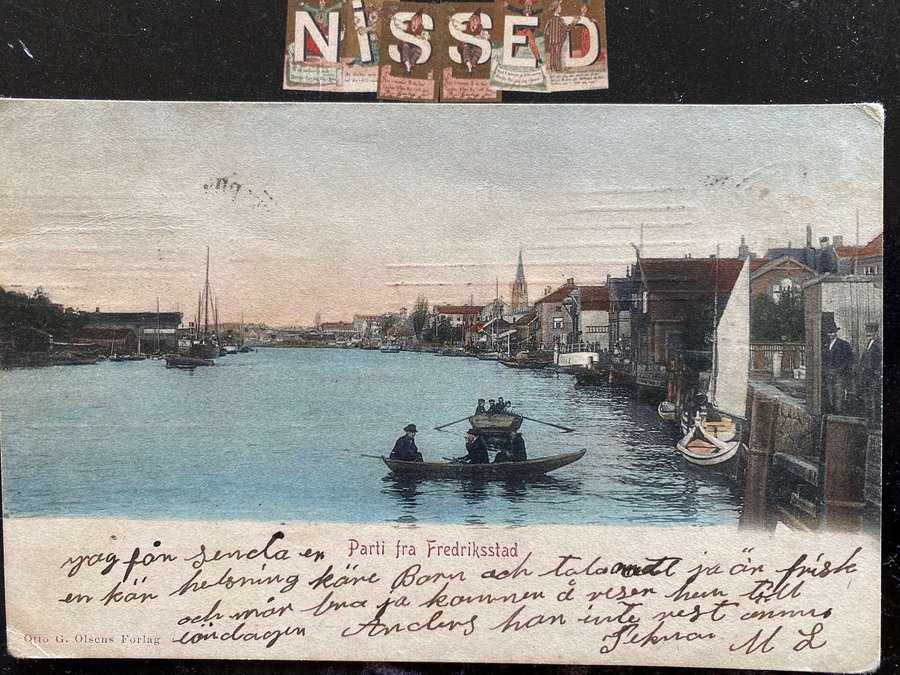 NiSSED
Parti fra Fredriksstad
yag fån senda er
en kär helsning käre Barn och tala att ja är frisk
och mår bra ja kommer å reser hem till
söndagen Anders har inte rest ännu
M L
Otto G. Olsens Forlag